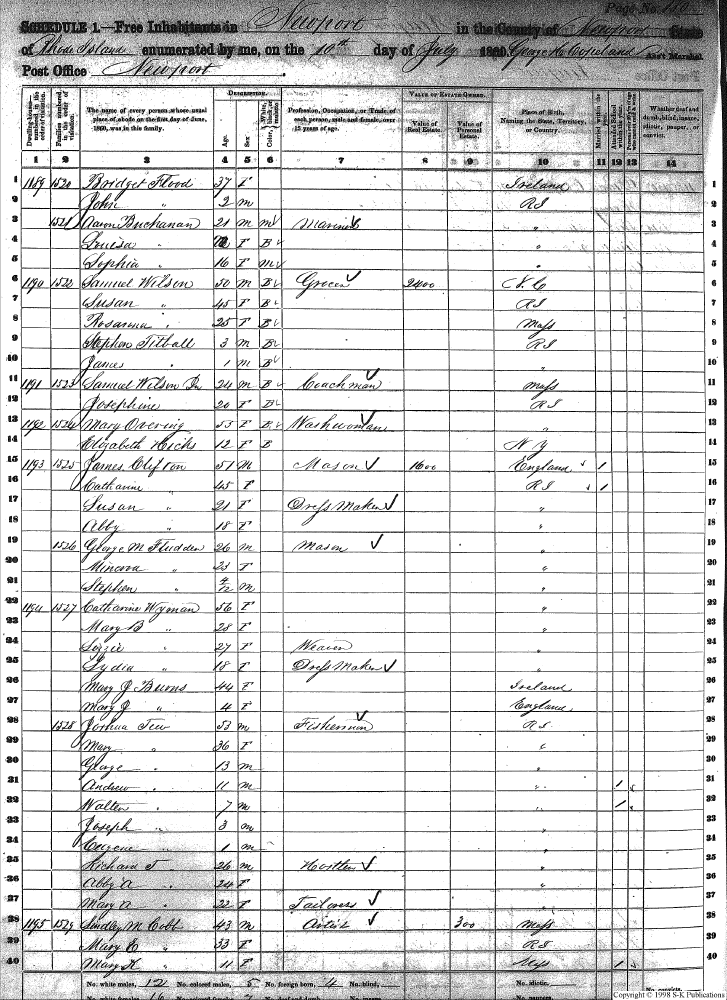 Page No. 110
SCHEDULE 1.—Free Inhabitants in Newport in the County of Newport State
of Rhode Island enumerated by me, on the 10th day of July 1860 Ass't Marshal.
Post Office Newport.
Dwelling-houses—numbered in the order of visitation. Families numbered in the order of visitation. The name of every person whose usual place of abode on the first day of June, 1860, was in this family. DESCRIPTION. Age. Sex. Profession, Occupation, or Trade of each person, male and female, over 15 years of age. VALUE OF ESTATE OWNED. Value of Real Estate. Value of Personal Estate. Place of Birth, Naming the State, Territory, or Country. Married within the year. Whether deaf and dumb, blind, insane, idiotic, pauper, or convict.
1 2 3 4 5 6 7 8 9 10 11 12 13 14
1 1189 1520 Bridget Flood 37 F Ireland 1
2 John " 2 m RI 2
3 1521 Aaron Buchanan 21 m m Mariner " 3
4 Louisa " F B " 4
5 Sophia " 16 F m " 5
6 1190 1522 Samuel Wilson 50 m B Grocer 2400 6
7 Susan " 45 F B RI 7
8 Rosanna " 25 F B Mass 8
9 Stephen 3 m B RI 9
10 James " 1 m B " 10
11 1191 1523 Samuel Wilson Jr 24 m B Coachman Mass 11
12 Josephine 20 F B RI 12
13 1192 1524 Mary Overing 55 F B Washwoman " 13
14 Elizabeth Hicks 12 F B N Y 14
15 1193 1525 James Clifton 51 m Mason 1600 England 1 15
16 Catharine " 45 F RI 1 16
17 Susan " 21 F Dress Maker " 17
18 Abby " 18 F " 18
19 1526 George M Fludder 26 m Mason " 19
20 Minerva " 23 F " 20
21 Stephen " m " 21
22 1194 1527 Catharine Wyman 56 F " 22
23 Mary B " 28 F " 23
24 Lizzie " 27 F Weaver " 24
25 Lydia " 18 F Dress Maker " 25
26 Mary J Burns 44 F Ireland 26
27 Mary J " 4 F England 27
28 1528 Joshua Tew 53 m Fisherman RI 28
29 Mary " 36 F " 29
30 George " 13 m " 30
31 Andrew " 11 m " 1 31
32 Walter " 7 m " 1 32
33 Joseph " 3 m " 33
34 Eugene " 1 m " 34
35 Richard T " 26 m Hostler " 35
36 Abby A " 24 F " 36
37 Mary A " 22 F Tailoress " 37
38 1195 1529 Lindley M Cobb 43 m Artist 300 Mass 38
39 Mary E " 33 F RI 39
40 Mary K " 11 F Mass 1 40
No. white males, 12 No. colored males, 5 No. foreign born, 4 No. blind, No. idiotic,
Copyright © 1998 S-K Publications